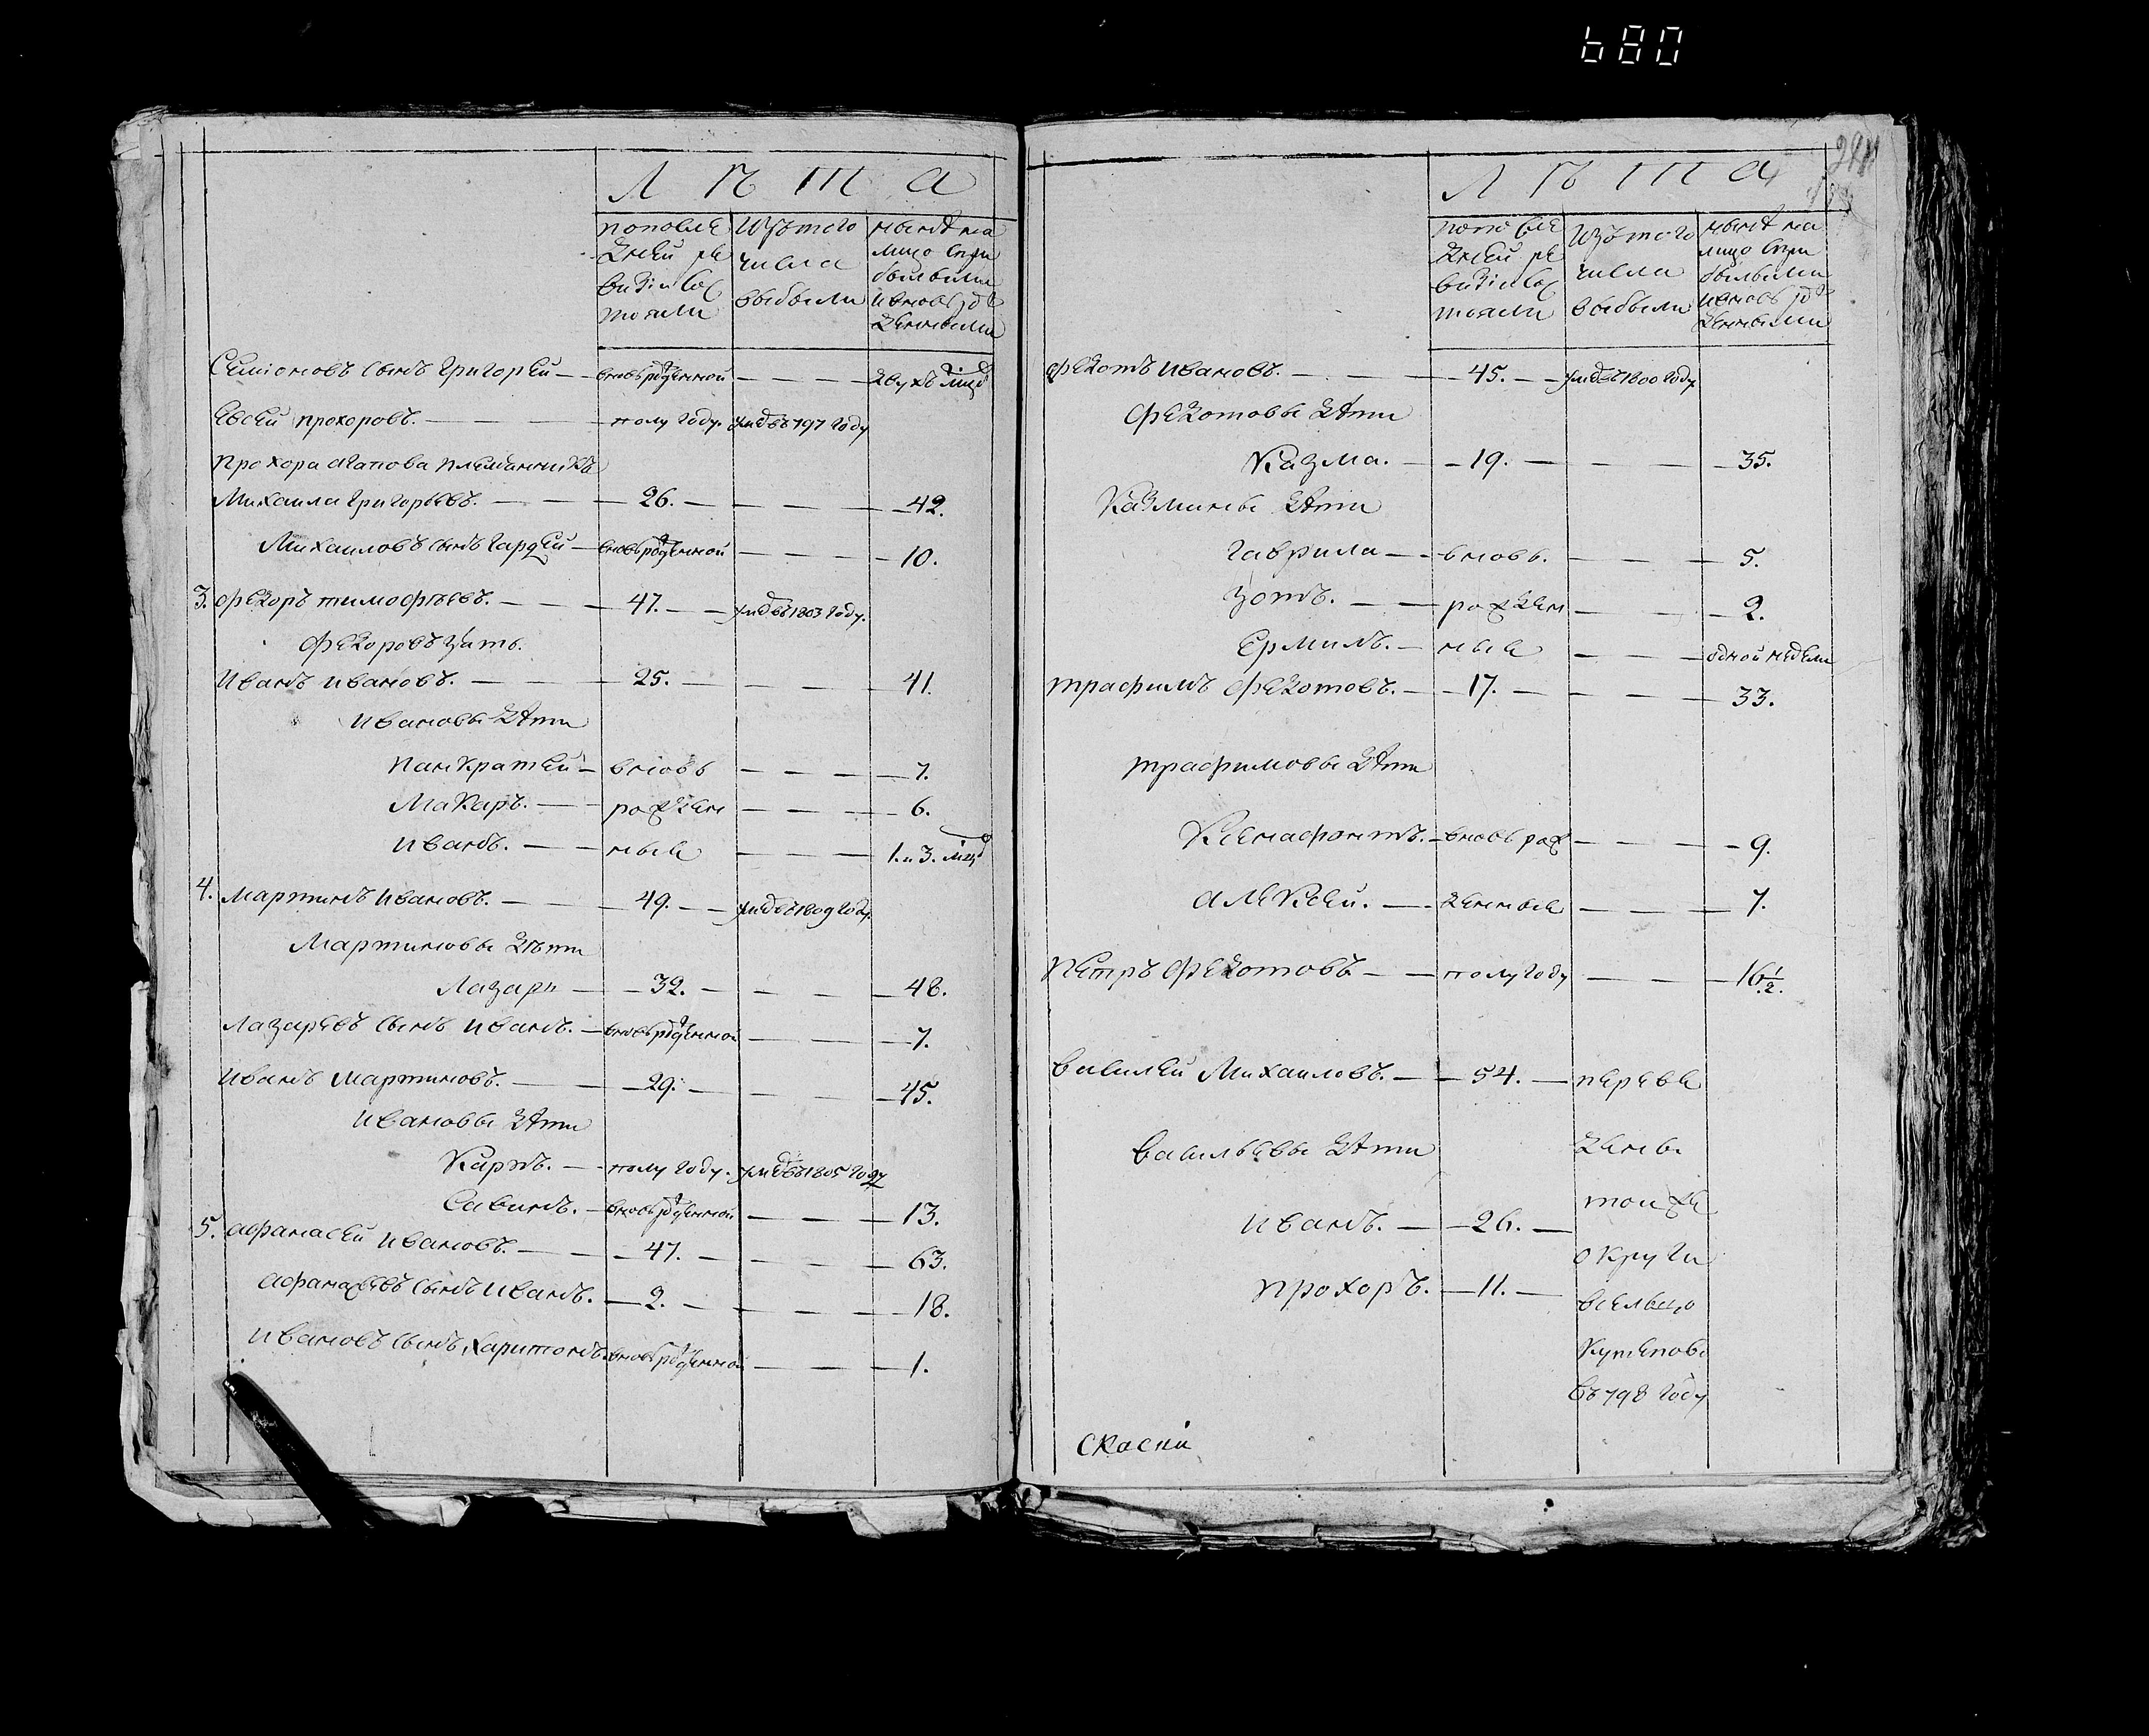 680
Л Ѣ Т А
попослѣ
дней ре
визiи сос
тояли
Изътого
числа
выбыли
нынѣ на
лицо спри
былыми
ивновь рож
денными
Семiоновъ сынъ Григорей — вновьрожденной — — — двухъ мѣсяц
Евсей прохоровъ. — — — полу году. умре въ 797 году
прохора агапова племянникъ
Михаила Григорьевъ. — — 26. — — — 42.
Михаиловъ сынъ Гардей — вновьрожденной — — — 10.
3. Федоръ тимофѣевъ. — — 47. — — умре въ 1803 году.
Федоровъ зять.
Иванъ ивановъ. — — 25. — — — 41.
ивановы дѣти
Панкратей — вновь — — — 7.
Макаръ. — — рожден — — — 6.
иванъ. — — ные — — — 1. и 3. мѣс
4. мартинъ ивановъ. — — 49. — — умре въ 1809 году.
Мартиновы дѣти
Лазарь — — 32. — — — 48.
Лазаревъ сынъ иванъ. — вновьрожденной — — — 7.
иванъ мартиновъ. — — 29. — — — 45.
ивановы дѣти
Карпъ. — — полу году. умре въ 1805 году
Савинъ. — вновьрожденной — — — 13.
5. афанасей ивановъ. — — 47. — — — 63.
афанасьевъ сынъ иванъ. — 2. — — — 18.
ивановъ сынъ харитонъ. вновьрожденной — — — 1.
Л Ѣ Т А
попослѣ
дней ре
визiи сос
тояли
Изътого
числа
выбыли
нынѣ на
лицо спри
былыми
ивновь рож
денными
федотъ ивановъ. — — 45. — умре въ 1800 году.
Федотовы дѣти
Казма. — — 19. — — — 35.
Казмины дѣти
гаврила — — вновь. — — — 5.
зотъ. — — рожден — — — 2.
Ермилъ. — ные — — — одной недели
трафимъ Федотовъ. — — 17. — — — 33.
трафимовы дѣти
Ксенафонтъ. — вновь рож — — — 9.
алексей. — — денные — — — 7.
Петръ Федотовъ — — полугоду — — — 16 1/2.
василей Михаиловъ. — — 54. — переве
васильевы дѣти дены
иванъ. — — 26. — той же
округи
прохоръ. — 11. — всельцо
Кутепово
въ 798 году
скаски